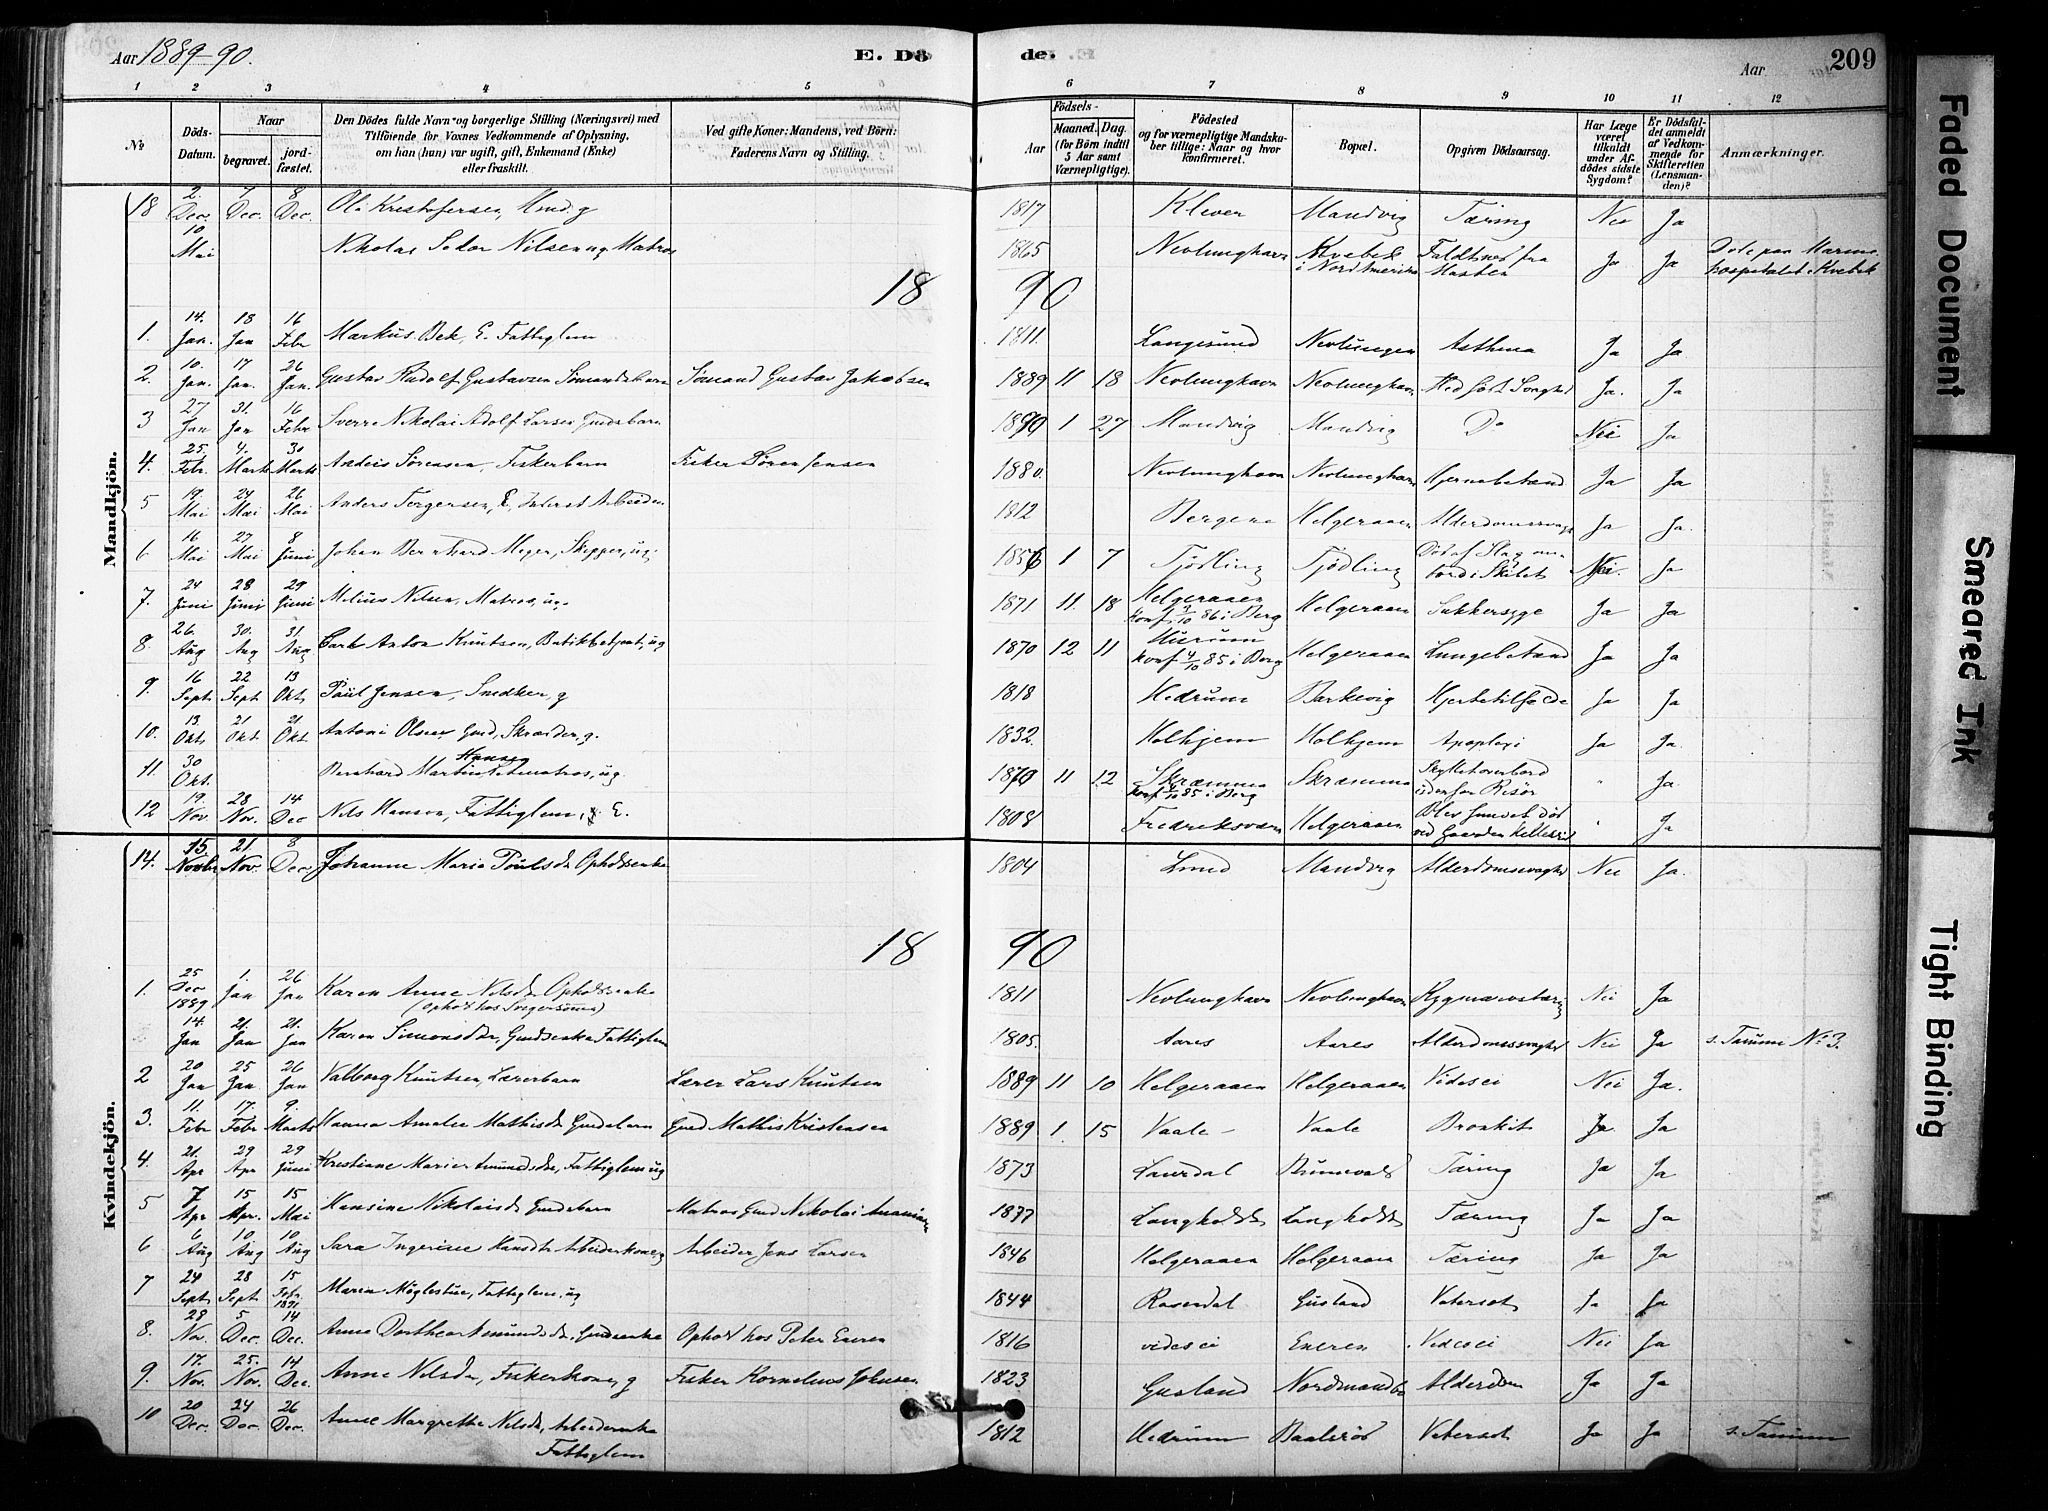 Aar 1889-90.
E. Dö
de.
Aar
209
1 2 3 4 5 6 7 8 9 10 11 12
No
Döds-Datum.
Naar
begravet.
jordfæstet.
Den Dödes fulde Navn og borgerlige Stilling (Næringsvei) med
Tilföiende for Voxnes Vedkommende af Oplysning,
om han (hun) var ugift, gift, Enkemand (Enke)
eller fraskilt.
Ved gifte Koner: Mandens, ved Börn:
Faderens Navn og Stilling.
Födsels-
Aar
Maaned. Dag.
(for Börn indtil
5 Aar samt
Værnepligtige).
Födested
og for værnepligtige Mandskaber tillige: Naar og hvor
konfirmeret.
Bopæl.
Opgiven Dödsaarsag.
Har Læge
været
tilkaldt
under Afdödes sidste
Sygdom?
Er Dödsfaldet anmeldt
af Vedkommende for
Skifteretten
(Lensmanden)?
Anmærkninger.
Mandkjön.
18 2. Dec. 7 Dec. 8 Dec. Ole Kristofersen, g 1817 Klever Mandvig Tæring Nei Ja
10 Mai Nikolai Nilsen ug Matros 1865 Nevlunghavn Kvebek i Nordamerika fra Masten Ja Ja Døde paa Marinehospitalet i Kvebek
18 90
1. 14. Jan. 18 Jan 16 Febr Markus Bek, E. Fattiglem 1811. Langesund Nevlungen Asthma Ja Ja
2. 10. Jan. 17 Jan. 26 Jan. Gustav Rudolf Gustavsen Sømandsbarn Sømand Gustav Jakobsen 1889 11 18 Nevlunghavn Nevlunghavn Ja. Ja
3 27 Jan 31. Jan 16 Febr Sverre Nikolai Adolf Larsen Gmdsbarn 1890 1 27 Mandvig Mandvig Do Nei Ja
4. 25. Febr. 4. Marts 30 Marts Anders Sørensen, Fiskerbarn Fisker Søren Jensen 1880. Nevlunghavn Nevlunghavn Hjernebetænd Ja Ja
5 19. Mai 24 Mai 26 Mai Anders Torgersen, E, Inderst Arbeider 1812 Bergene Helgeraaen Alderdomssvagh Ja Ja.
6 16 Mai 27 Mai 8 Juni Johan Bernhard Meyer, Skipper, ug. 1856 1 7 Tjödling Tjödling Død af Slag ombord i Skibet Nei. Ja
7. 24 Juni 28 Juni 29 Juni Milius Nilsen, Matros, ug. 1871 11. 18 Helgeraaen konf 86 i Berg Helgeraaen Sukkersyge Ja Ja
8 26. Aug 30. Aug 31. Aug Carl Anton Knutsen, Butikbetjent, ug 1870 12 11 Hurum konf 4/10 85 i Berg Helgeraaen Lungebetænd Ja Ja
9. 16 Sept 22 Sept 13 Okt Paul Jensen, Snedker, g 1818 Hedrum Barkevig Hjertetilfælde Ja Ja
10. 13. Okt 21 Okt. 21. Okt. Antoni Olsen Gmd, Skrædder, g. 1832. Holhjem Holhjem Apoplexi Ja Ja.
11. 30 Okt. Bernhard Martin Hansen Letmatros, ug. 1870 11 12 Skræmma konf 85 i Berg Skræmma Skyllet overbord udenfor Risör " Ja
12 19. Nov. 28 Nov. 14 Dec Nils Hansen, Fattiglem, E. 1808 Fredriksværn Helgeraaen Blev funden død ved Gaarden " Ja
Kvindekjön.
14. 15. Novbr 21. Nov. 8 Dec. Johanne Maria Poulsdr Opholdsenke 1804 Lund Mandvig Alderdomssvaghd Nei Ja.
18 90
1. 25 Dec 1889 1. Jan 26 Jan Karen Anne Nilsdr Opholdsenke (Ophold hos Svigersønnen) 1811 Nevlunghavn Nevlunghavn Rygmarvstæring Nei Ja
14. Jan 21. Jan 21. Jan Karen Simonsdtr, Gmdsenke Fattiglem 1805. Aares Aares Alderdomssvaghd Nei Ja s. Tanum No 3.
2 20 Jan 25 Jan 26 Jan Valborg Knutsen, Lærerbarn Lærer Lars Knutsen 1889 11 10 Helgeraaen Helgeraaen Vides ei Nei Ja.
3. 11. Febr 17. Febr 9. Marts Hanna Amalie Mathisdr Gmdsbarn Gmd Mathis Kristensen 1889 1. 15 Vaale Vaale Bronkit Ja Ja
4. 21. Apr 29 Apr 29 Juni Kristiane Marie Amundsdr, Fattiglem ug 1873 Laurdal Tæring Ja Ja
5 7 Apr 15 Apr. 15 Mai Hansine Nikolaisdr Gmdsbarn Matros Gmd Nikolai 1877 Langholdt Langholdt Tæring Ja Ja
6 6 Aug 10 Aug 10 Aug Sara Ingerine Hansdtr Arbeiderkone, g Arbeider Jens Larsen 1846 Helgeraaen Helgeraaen Tæring Ja Ja
7 24 Sept 28 Sept 15 Febr. 1891 Maren Møglestue, Fattiglem, ug 1844 Rosendal Gusland Vatersot Ja Ja
8. 28 Nov. 5 Dec. 14 Dec. Anne Dorthea Amundsdr, Gmdsenke Ophold hos Peter Eneren 1816 vides ei Eneren Vides ei Nei Ja
9. 17. Nov. 25. Nov. 14 Dec. Anne Nilsdr, Fiskerkone, g Fisker Kornelius Johnsen 1823 Gusland Alderdom Ja Ja
10 20 Dec. 24 Dec. 26 Dec. Anne Margrethe Nilsdr, Arbeiderenke Fattiglem 1812 Hedrum Vatersot Ja Ja s. Tanum
Faded Document
Smeared Ink
Tight Binding